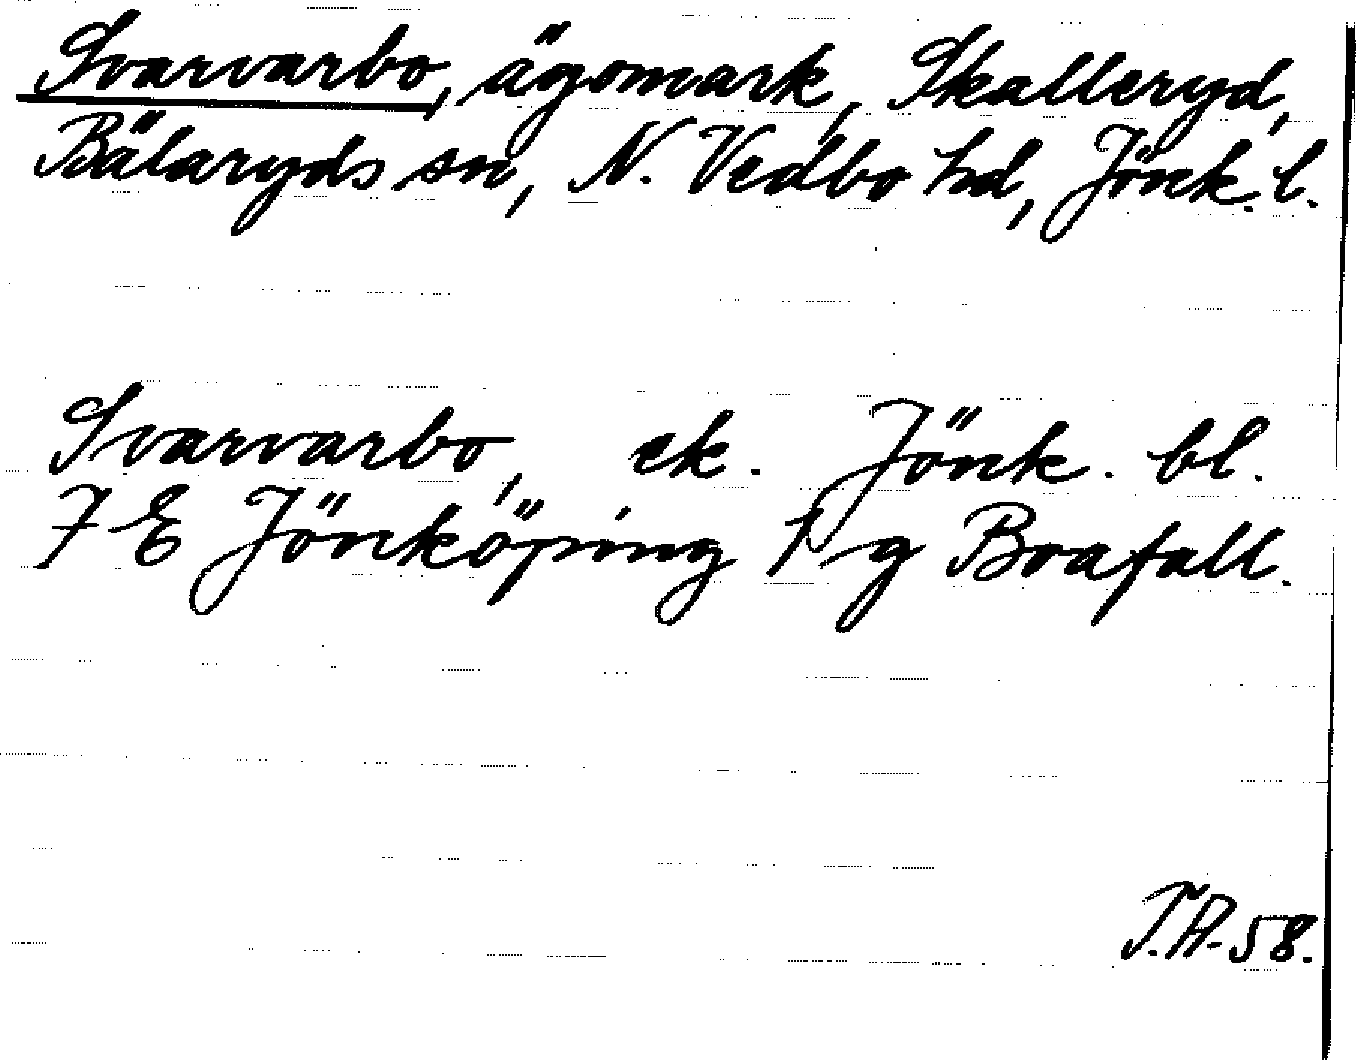 Svarvarbo, ägomark, Skalleryd,
Bälaryds sn, N. Vedbo hd, Jönk. l.
Svarvarbo, ek. Jönk. bl.
7 E Jönköping 1 g Boafall.
T.A. 58.